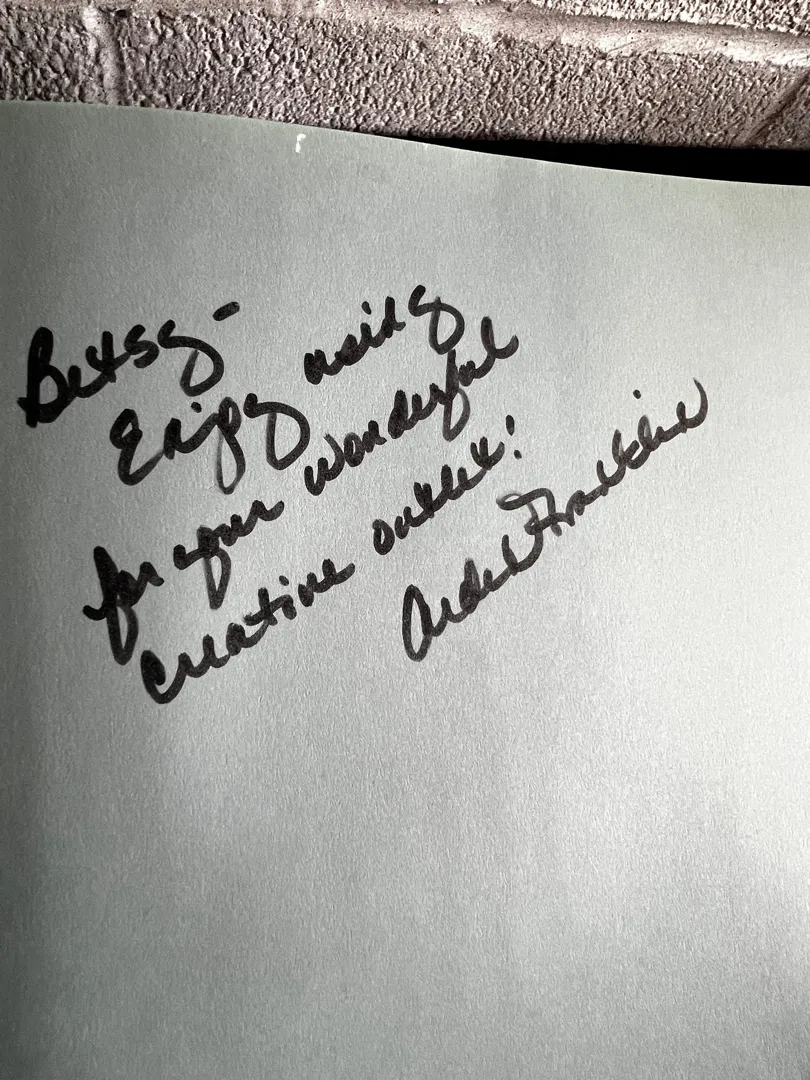 Betsy-
Enjoy using
for your wonderful
creative outlet!
Franklin